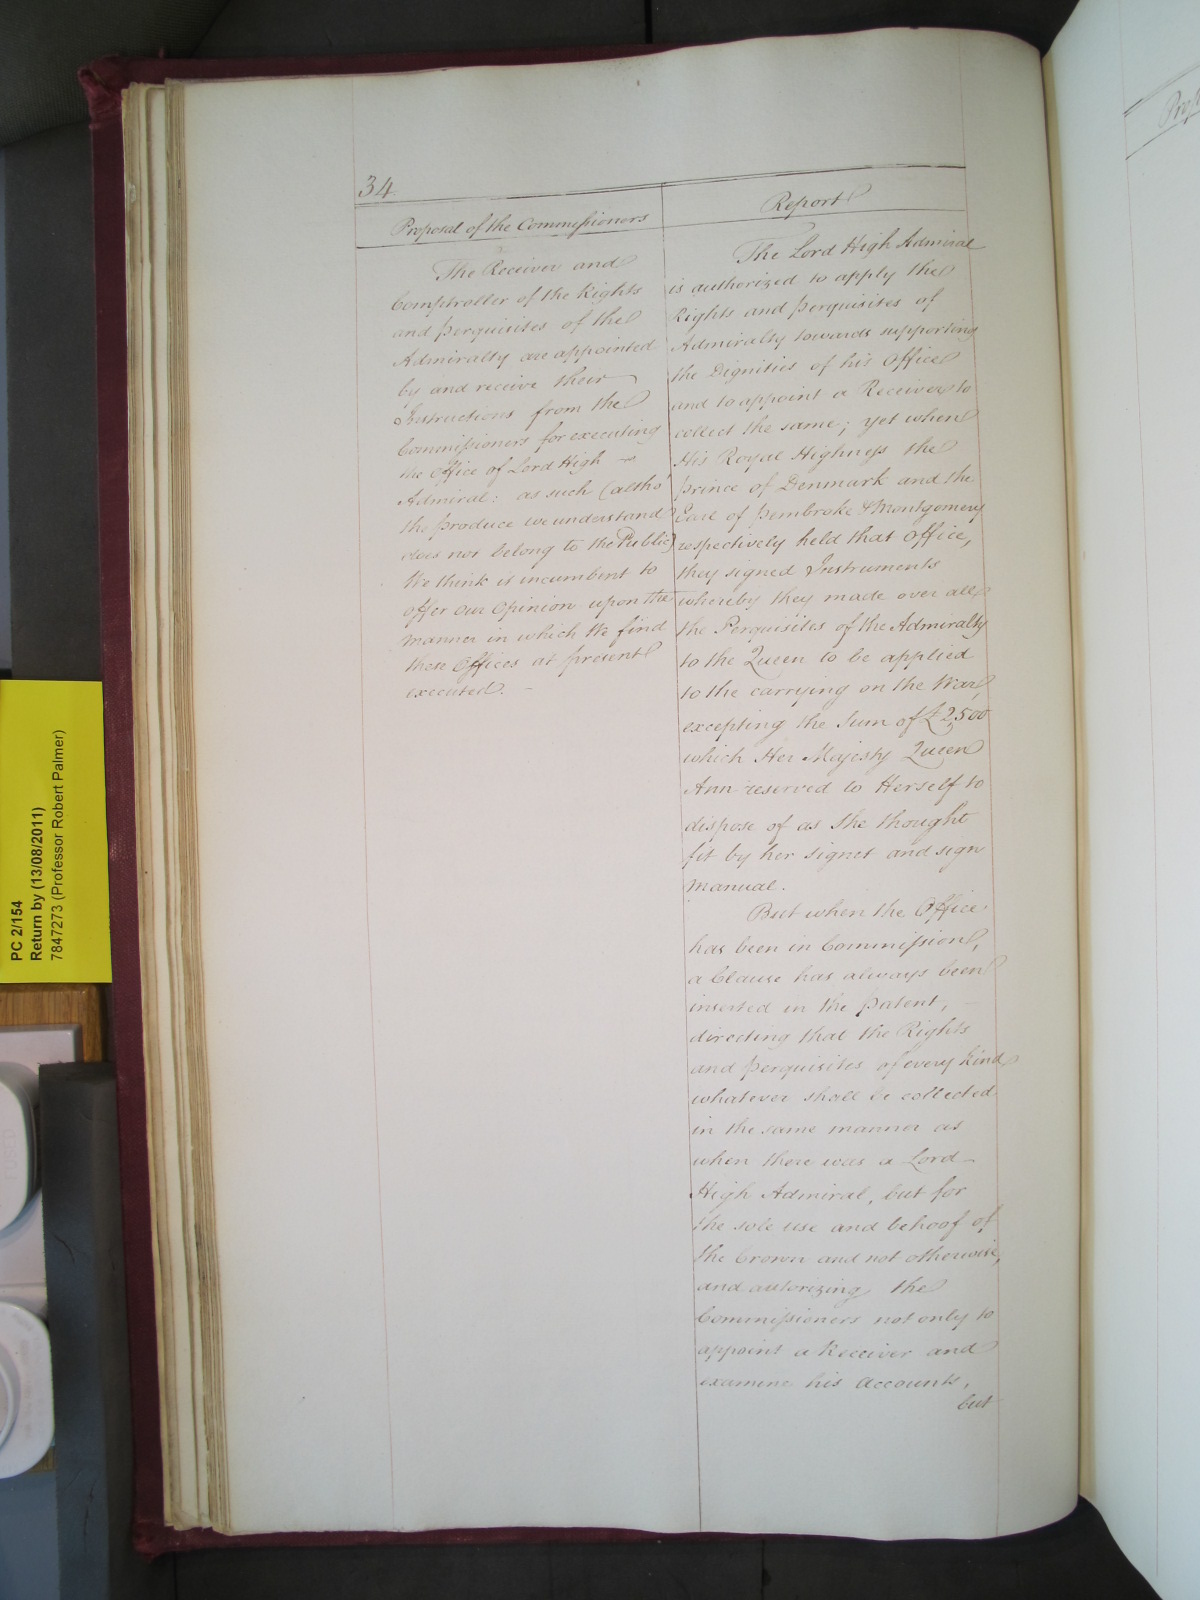 34
Proposal of the Commissioners
The Receiver and
Comptroller of the Rights
and perquisites of the
Admiralty are appointed
by and receive their
Instructions from the
Commissioners for executing
the Office of Lord High
Admiral: as such (altho'
the produce we understand
does not belong to the Public)
We think it incumbent to
offer our Opinion upon the
manner in which We find
these Offices at present
executed. -
Report
The Lord High Admiral
is authorized to apply the
Rights and perquisites of
Admiralty towards supporting
the Dignities of his Office
and to appoint a Receiver to
collect the same; yet when
His Royal Highness the
Prince of Denmark and the
Earl of Pembroke & Montgomery
respectively held that Office,
they signed Instruments
whereby they made over all
the Perquisites of the Admiralty
to the Queen to be applied
to the carrying on the War,
excepting the Sum of £2,500
which Her Majesty Queen
Ann reserved to Herself to
dispose of as She thought
fit by her signet and sign
manual.
But when the Office
has been in Commission,
a Clause has always been
inserted in the Patent, -
directing that the Rights
and perquisites of every kind
whatever shall be collected
in the same manner as
when there was a Lord -
High Admiral, but for
the sole use and behoof of
the Crown and not otherwise,
and autorizing the
Commissioners not only to
appoint a Receiver and
examine his Accounts,
but
PC 2/154
Return by (13/08/2011)
7847273 (Professor Robert Palmer)